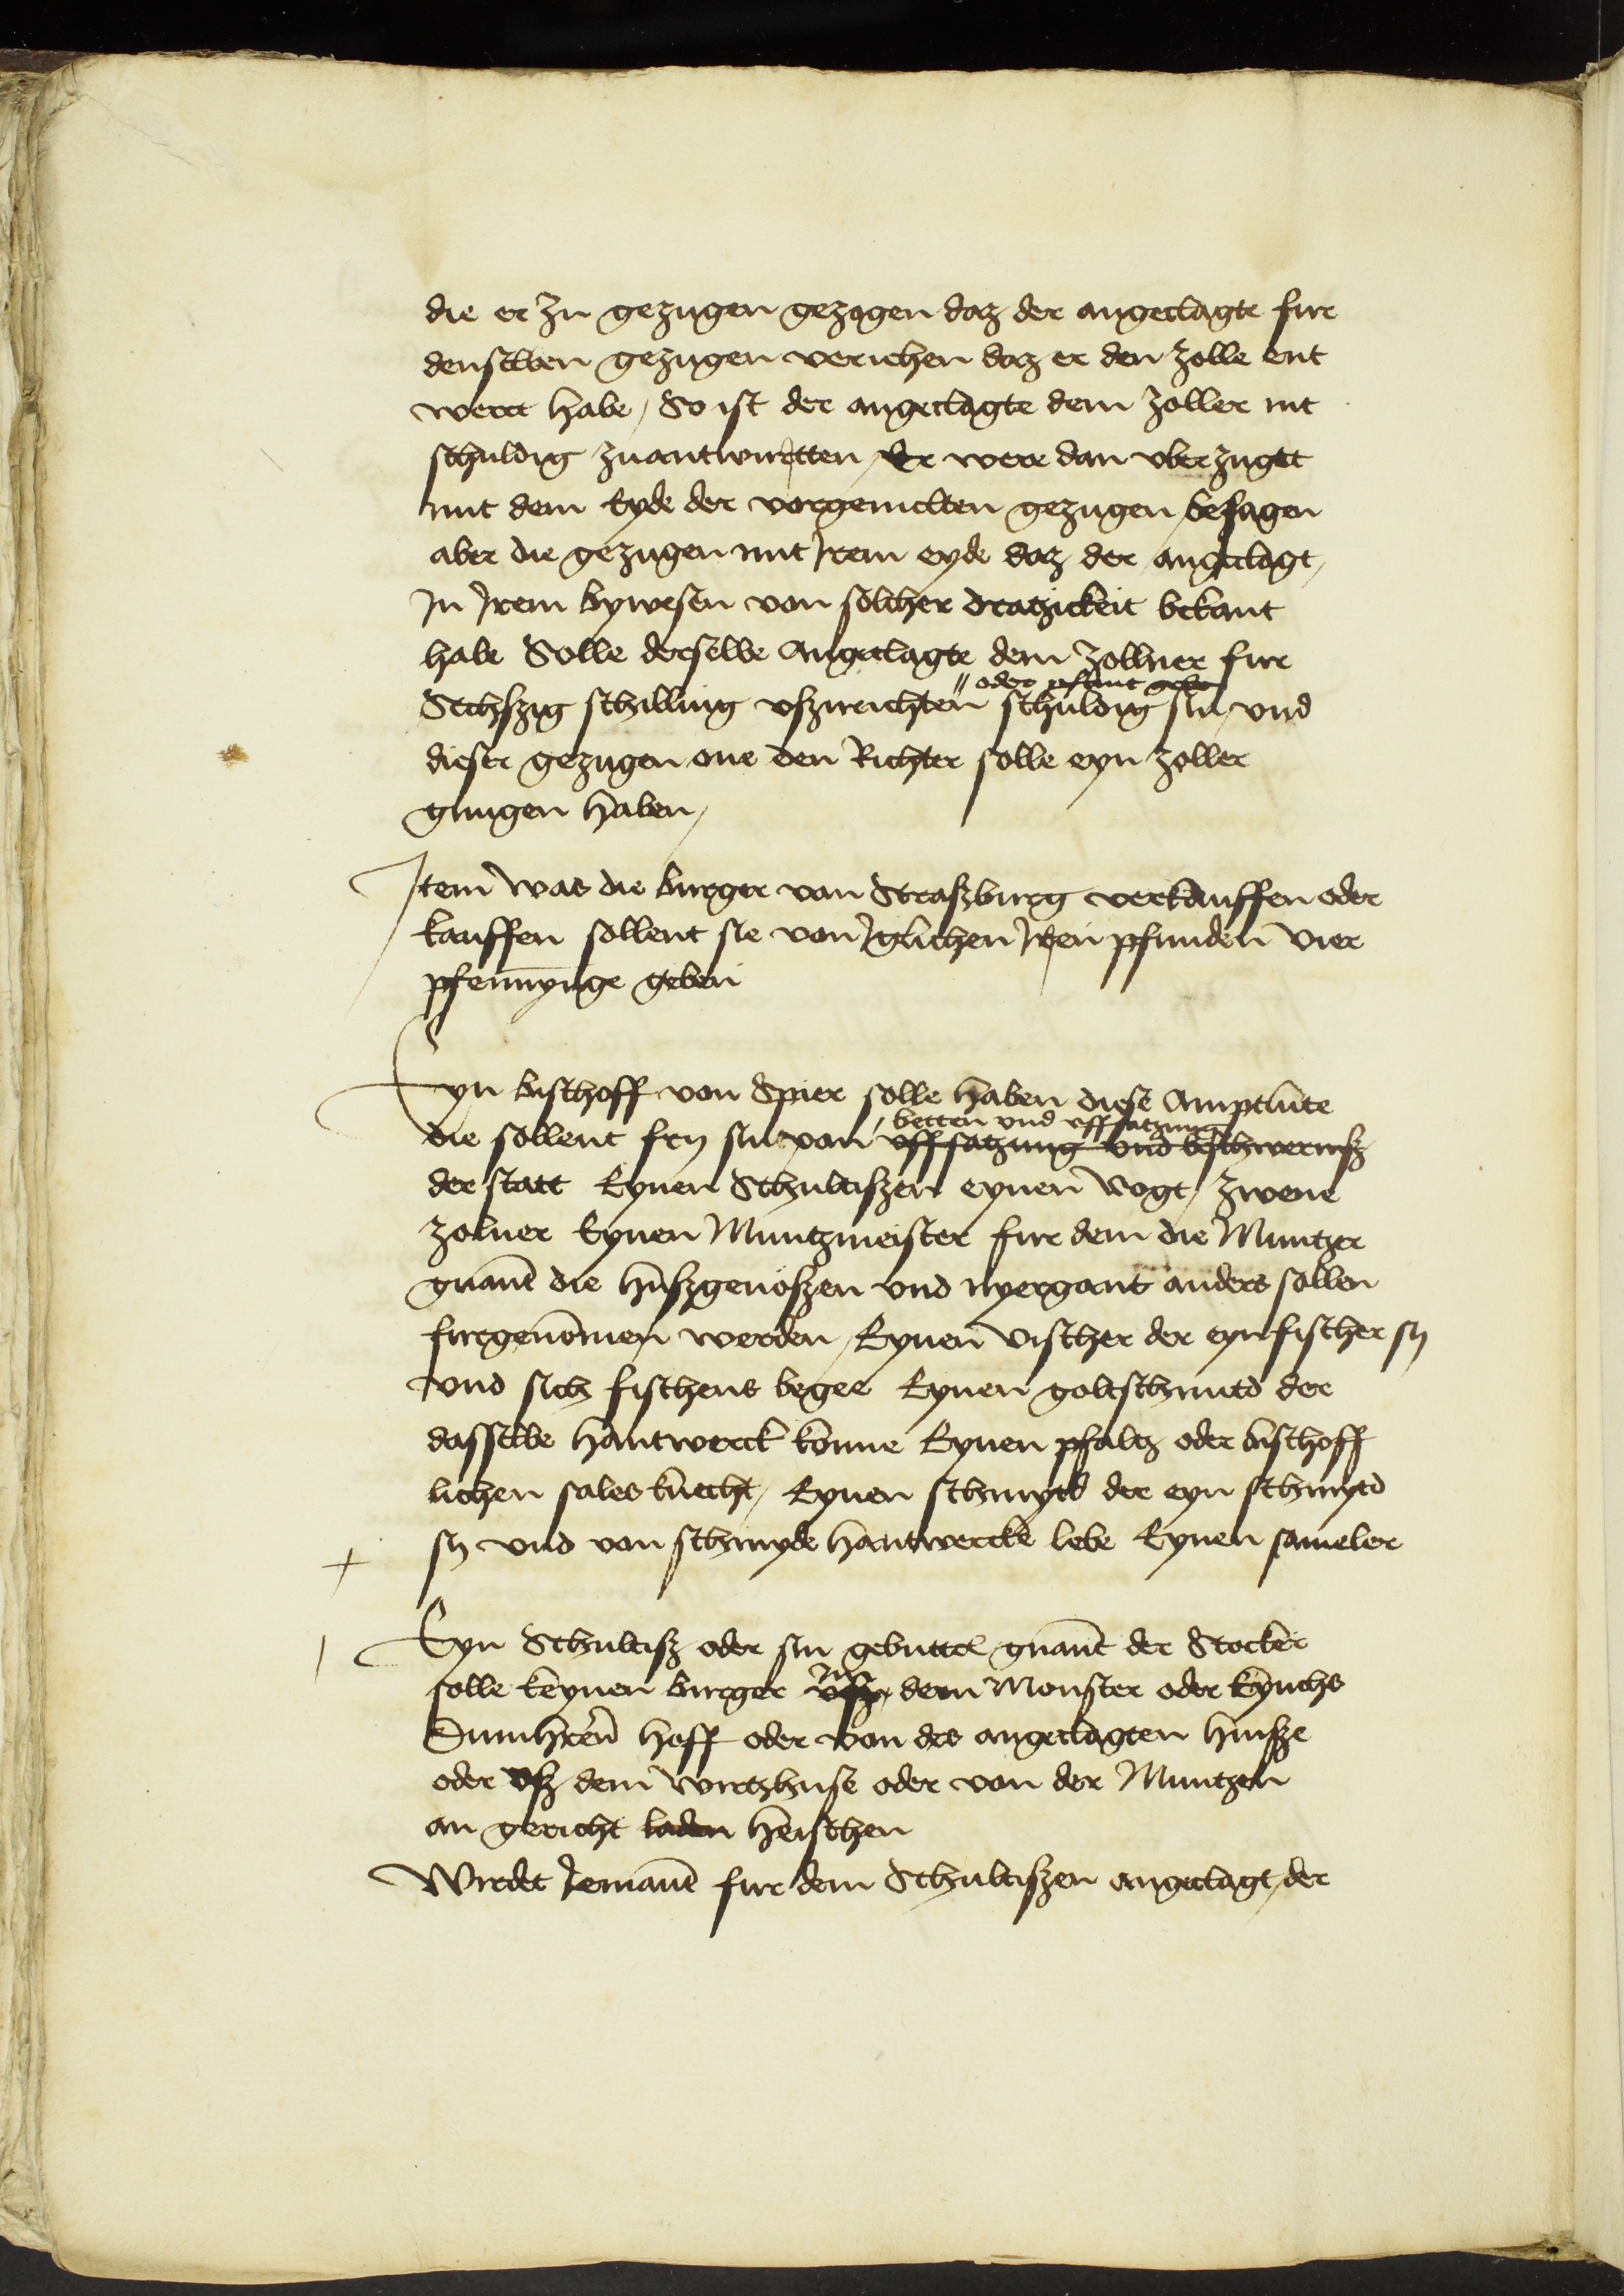 die er zu gezugen gezogen daz der angeclagte fur
denselben gezugen veriehen daz er den zolle ent
wert habe, So ist der angeclagte dem zoller nit
schuldig zuantwurtten, Er were dan vberzugtt
mit dem Eyde der vorgemelten gezugen, besagen
aber die gezugen mit Irem eyde daz der angeclagt,
In Irem bywesen von solcher bekant
habe Solle derselbe Angeclagte dem Zollner fur
oder pfant geben
Sechszig schilling vszurichten schuldig sin, vnd
dieser gezugen one den Richter solle eyn zoller
gnugen haben,
Item was die burger von Straszburg verkauffen oder
kauffen sollent sie von Iglichen Iren pfunden vier
pfennynge geben
Eyn bischoff von Spier solle haben diese Amptlute
betten vnd vffsatzung
die sollent fry sin von vffsatzung vnd beschwernisz
der statt Eynen Schultiszen eynen vogt, zwene
zolner Eynen Muntzmeister fur dem die Muntzer
gnant die huszgenoszen vnd nyergant anders sollen
furgenomen werden, Eynen vischer der eyn fischer sy
vnd sich fischens begee Eynen goltschmid der
dasselbe hantwerck konne Eynen pfaltz oder bischoff
lichen sales knecht, Eynen schmyd der eyn schmyd
sy vnd von schmyde hantwercke lebe Eynen sameler
Eyn Schultisz oder sin gebuttel gnant der Stocker
In
solle keynen burger vsz dem Monster oder Eynchs
Dumhern hoff oder von des angeclagten husze
oder vsz dem wirtzhuse oder von der Muntzen
an gericht laden heischen
Wirdet Iemant fur dem Schultiszen angeclagt, der